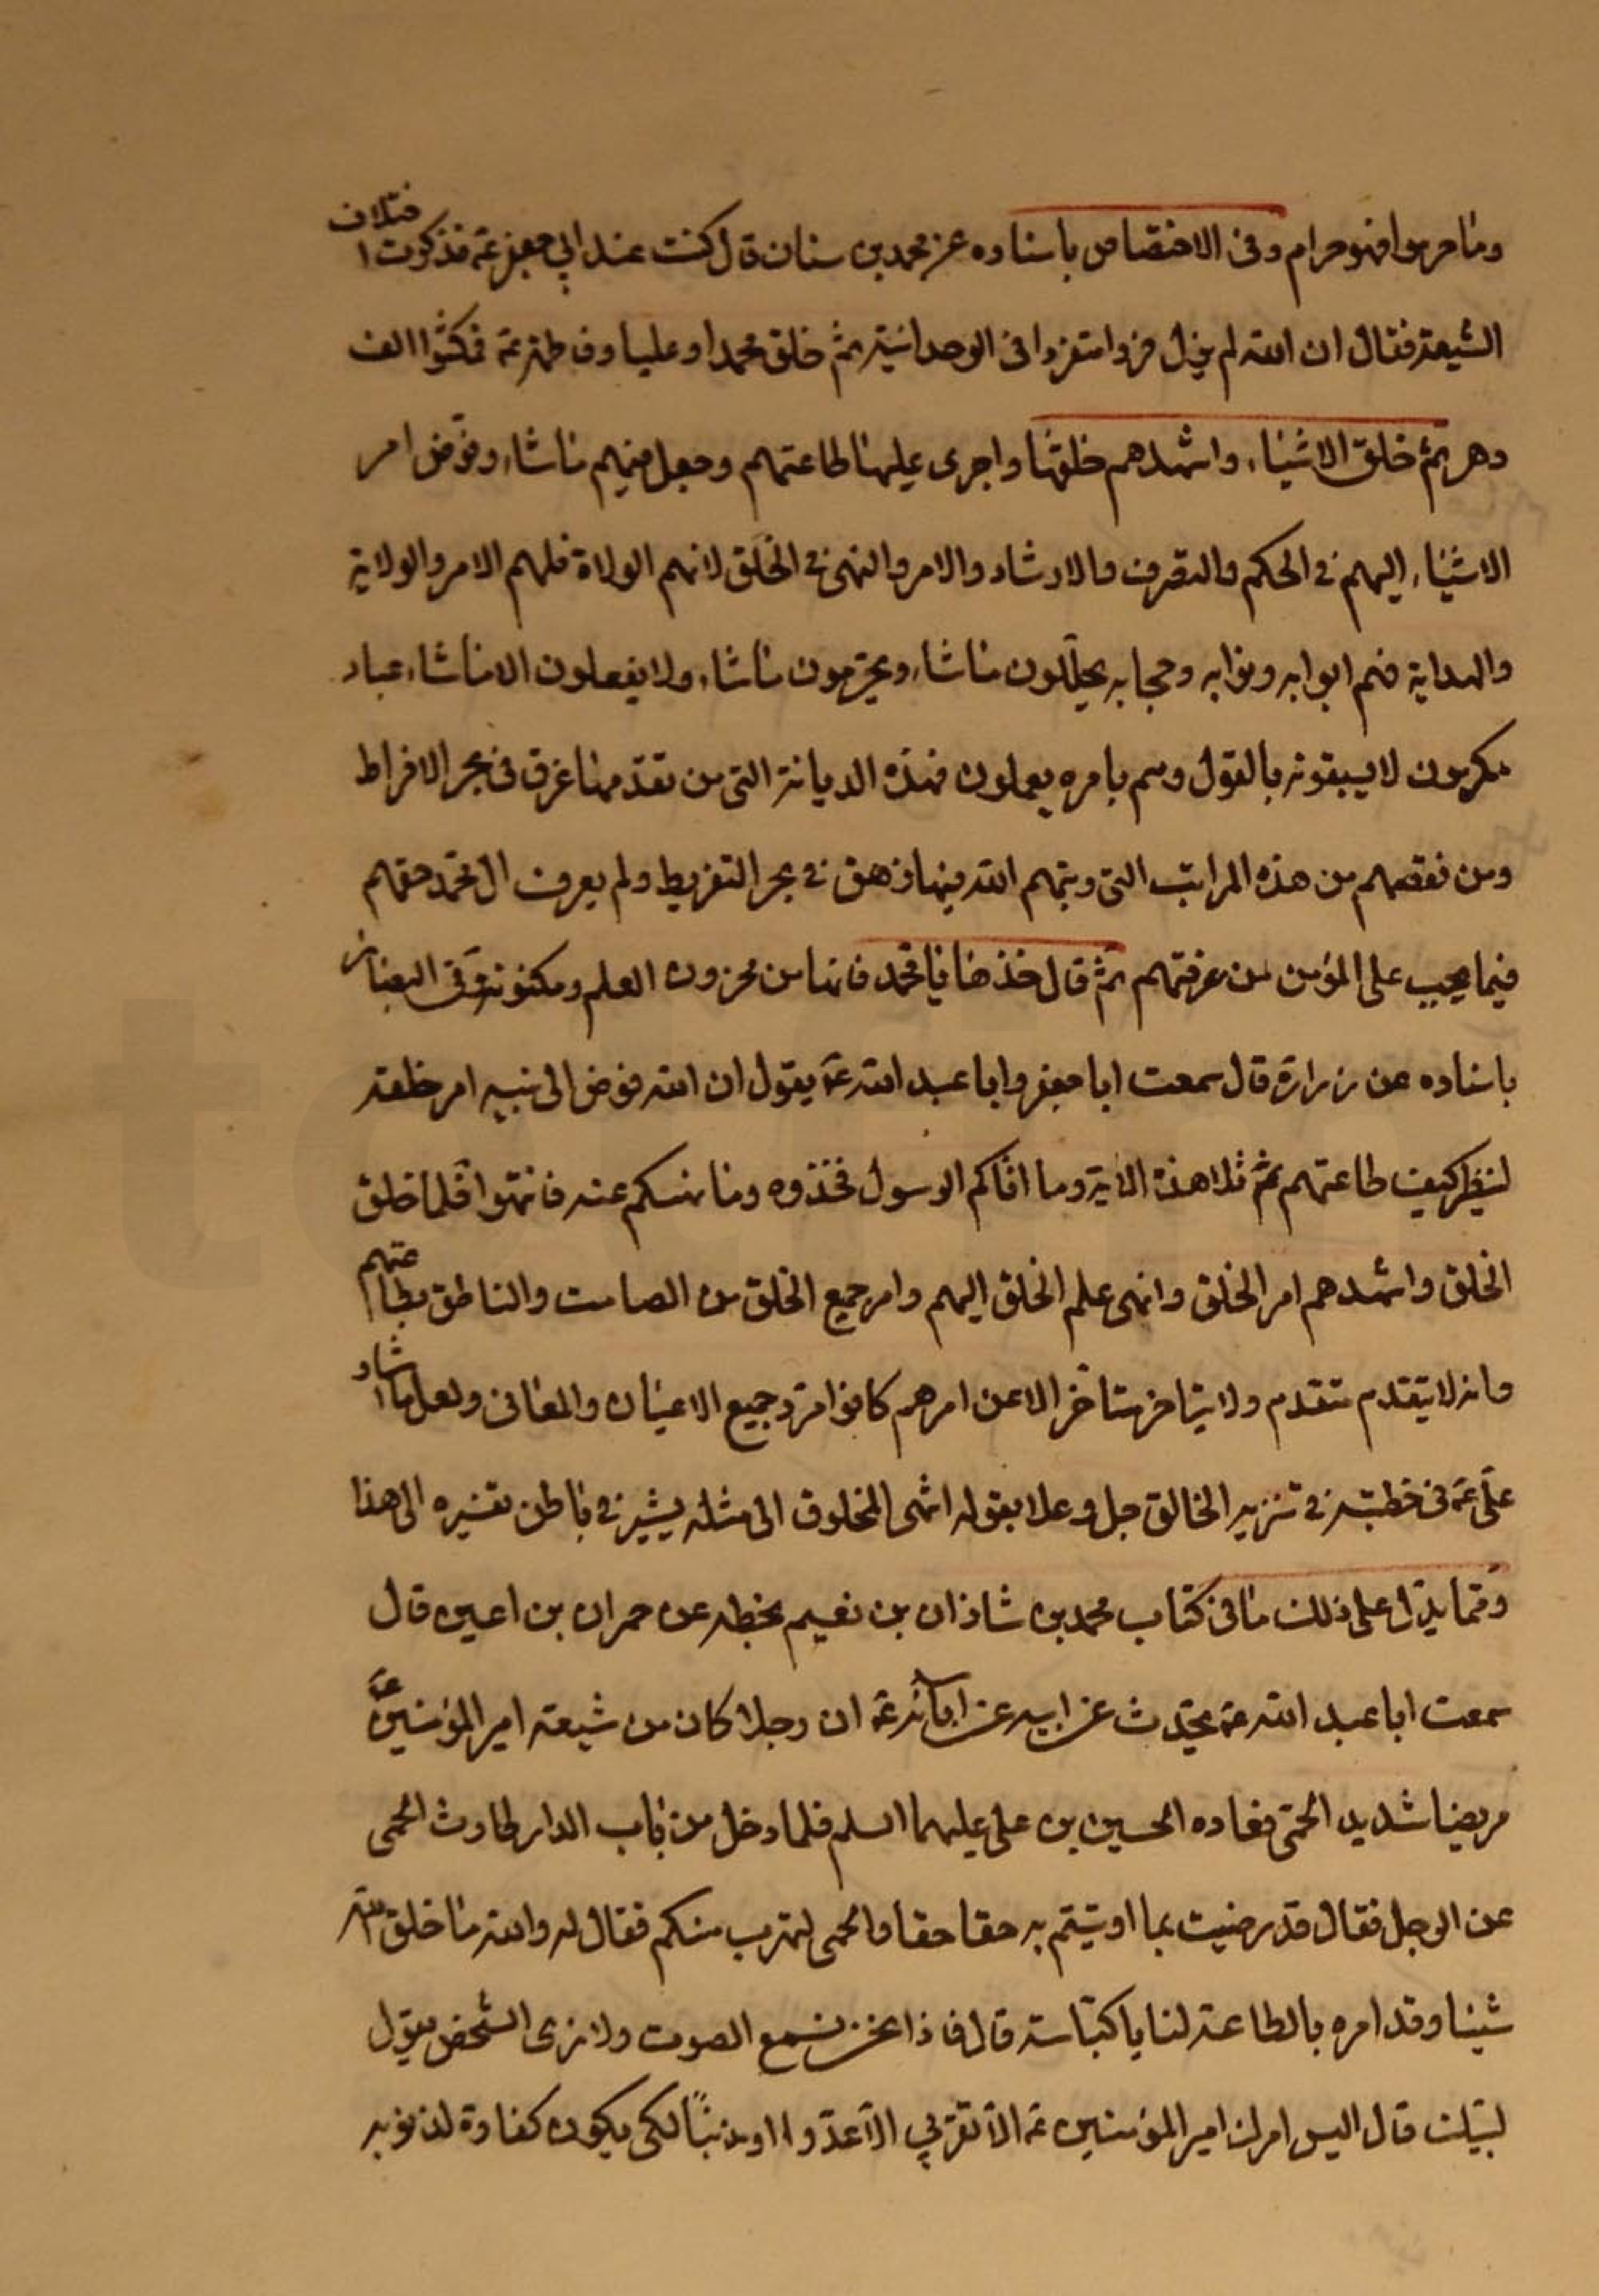 وما حرموا فهو حرام وفى الاختصاص باسناده عن محمد بن سنان قال كنت عند ابي جعفر عم فذكرت اختلاف
الشيعة فقال ان الله لم يزل فردا متفردا فى الوحدانية ثم خلق محمدا وعليا وفاطمة عم فمكثوا الف
دهر ثم خلق الاشياء واشهدهم خلقها واجرى عليها طاعتهم وجعل فيهم ما شاء وفوض امر
الاشياء اليهم في الحكم والتصرف والارشاد والامر والنهى في الخلق لانهم الولاة فلهم الامر والولاية
والهداية فهم ابوابه ونوابه وحجابه يحللون ما شاء ويحرمون ما شاء ولا يفعلون الا ما شاء عباد
مكرمون لا يسبقونه بالقول وهم بامره يعملون فهذه الديانة التى من تقدمها غرق فى بحر الافراط
ومن نقصهم من هذه المراتب التى رتبهم الله فيها زهق في بحر التفريط ولم يعرف ال محمد حقهم
فيما يجب على المؤمن من معرفتهم ثم قال خذها يا محمد فانها من مخزون العلم ومكنونه وفى البصائر
باسناده عن زرارة قال سمعت ابا جعفر وابا عبد الله عم يقول ان الله فوض الى نبيه امر خلقه
لينظر كيف طاعتهم ثم تلا هذه الاية وما اتاكم الرسول فخذوه وما نهيكم عنه فانتهوا فلما خلق
الخلق واشهدهم امر الخلق وانهى علم الخلق اليهم وامر جميع الخلق من الصامت والناطق بطاعتهم
وانه لا يتقدم متقدم ولا يتاخر متاخر الا عن امرهم كانوا مرد جميع الاعيان والمعانى ولعل ما اشار
علي عم فى خطبته في تنزيه الخالق جل وعلا بقوله انتهى المخلوق الى مثله يشير في باطن تفسيره الى هذا
ومما يدل على ذلك ما فى كتاب محمد بن شاذان بن نعيم بخطه عن حمران بن اعين قال
سمعت ابا عبد الله عم يحدث عن ابيه عن ابائه عم ان رجلا كان من شيعة امير المؤمنين عم
مريضا شديد الحمى فعاده الحسين بن على عليهما السلم فلما دخل من باب الدار طارت الحمى
عن الرجل فقال قد رضيت بما اوتيتم به حقا حقا والحمى لتهرب منكم فقال له والله ما خلق الله
شيئا وقد امره بالطاعة لنا يا كباسة قال فاذا نحن نسمع الصوت ولا نرى الشخص يقول
لبيك قال اليس امرك امير المؤمنين عم الا تقربي الا عدوا او مذنبا لكى يكون كفارة لذنوبه